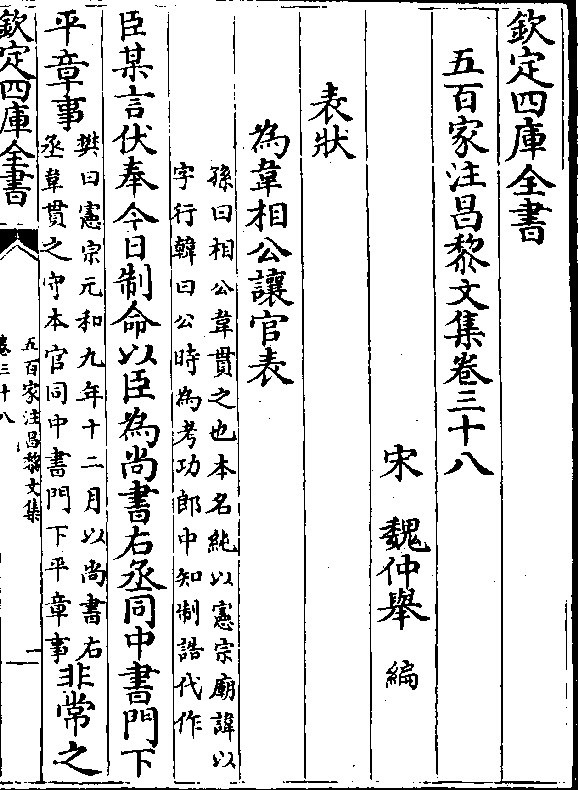 欽定四庫全書
五百家注昌黎文集卷三十八
宋 魏仲舉 編
表狀
為韋相公讓官表
孫曰相公韋貫之也本名純以憲宗廟諱以
字行韓曰公時為考功郎中知制誥代作
臣某言伏奉今日制命以臣為尚書右丞同中書門下
平章事
樊曰憲宗元和九年十二月以尚書右
丞韋貫之守本官同中書門下平章事
非常之
欽定四庫全書
五百家注昌黎文集
卷三十八
一